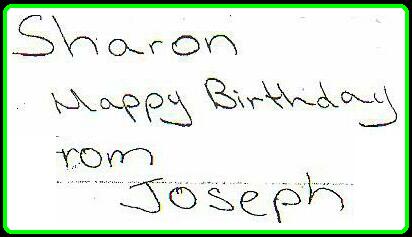 Sharon
Happy Birthday
rom
Joseph